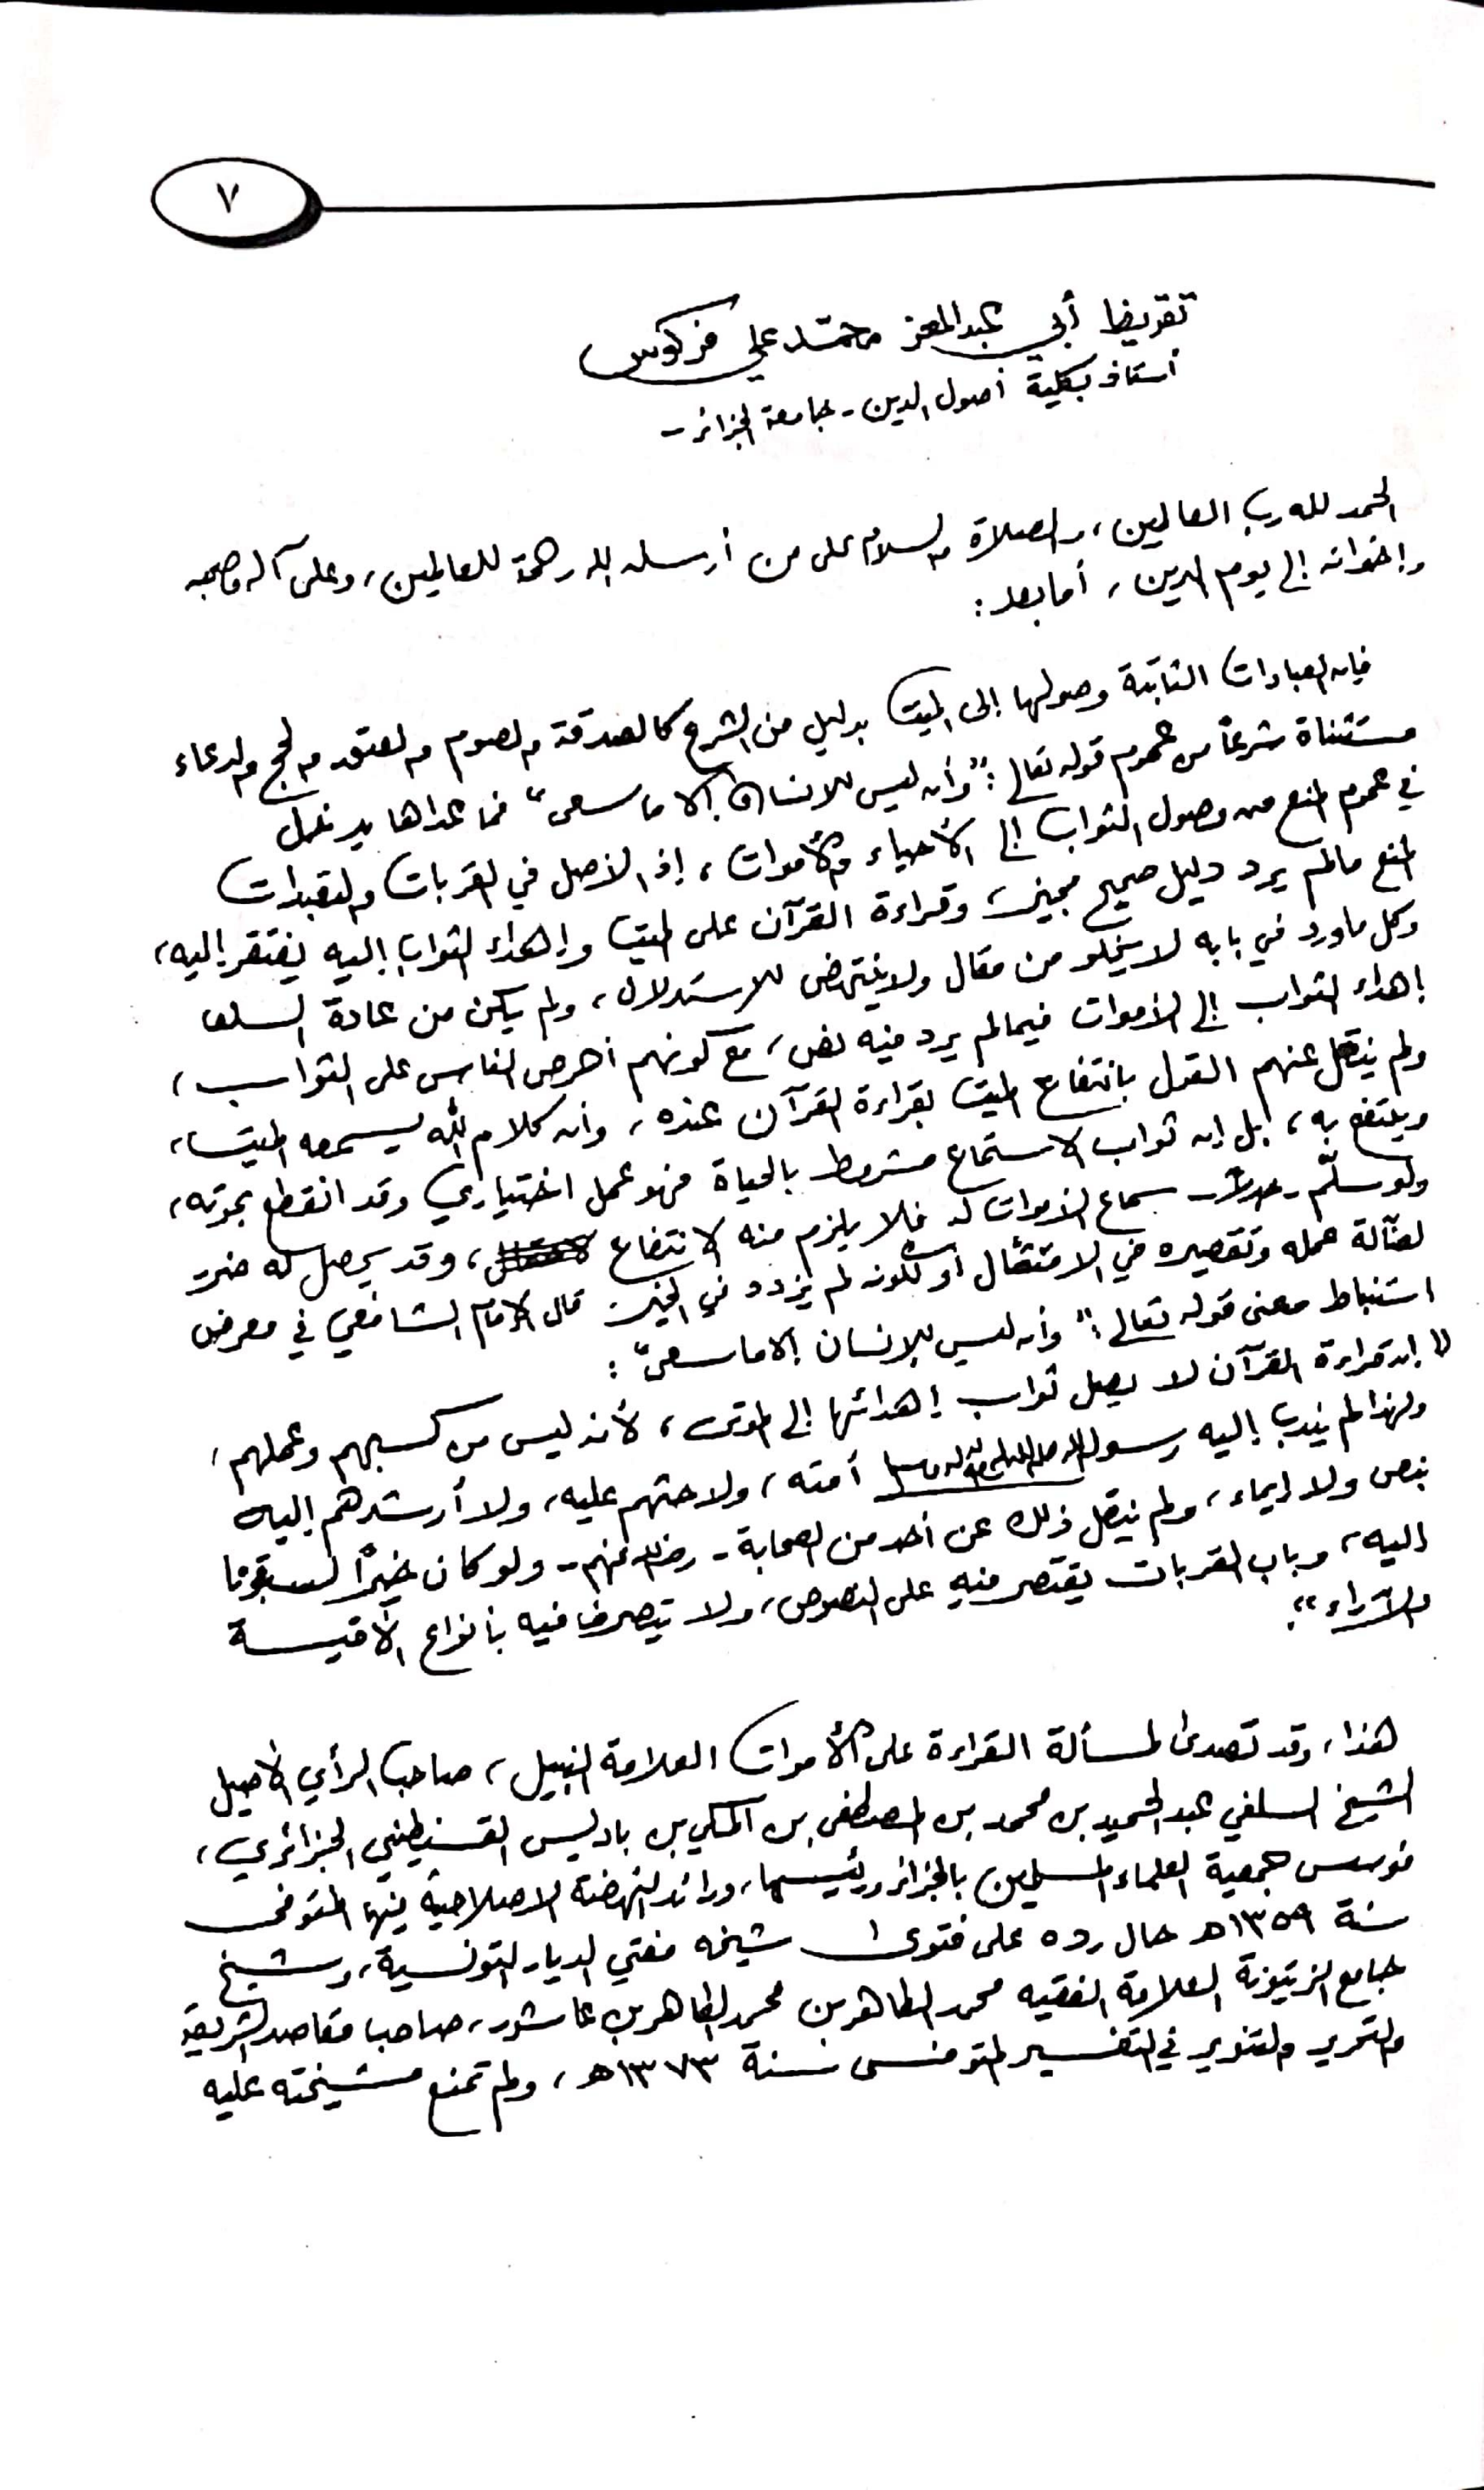 ٧
تقريظ أبي عبد المعز محمّد علي فركوس
أستاذ بكلية أصول الدين - جامعة الجزائر -
الحمد لله رب العالمين، والصلاة والسلام على من أرسله الله رحمة للعالمين، وعلى آله وصحبه
وإخوانه إلى يوم الدين، أما بعد:
فإن العبادات الثابتة وصولها إلى الميت بدليل من الشرع كالصدقة والصوم والعتق والحج والدعاء
مستثناة شرعًا من عموم قوله تعالى: "وأن ليس للانسان إلا ما سعى" فما عداها يدخل
في عموم المنع من وصول الثواب إلى الأحياء والأموات، إذ الأصل في القربات والتعبدات
المنع مالم يرد دليل صحيح مجيز، وقراءة القرآن على الميت وإهداء الثواب إليه يفتقر إليه،
وكل ما ورد في بابه لا يخلو من مقال ولا ينتهض للاستدلال، ولم يكن من عادة السلف
إهداء الثواب إلى الأموات فيما لم يرد فيه نص، مع كونهم أحرص الناس على الثواب،
ولم ينقل عنهم القول بانتفاع الميت بقراءة القرآن عنده، وأن كلام الله يسمعه الميت،
وينتفع به، بل إن ثواب الاستماع مشروط بالحياة فهو عمل اختياري وقد انقطع بموته،
ولو سلّم - جدلاً - سماع الأموات له فلا يلزم منه الانتفاع، وقد يحصل له ضرر
لضآلة عمله وتقصيره في الامتثال أو لكونه لم يزدد في الخير قال الإمام الشافعي في معرض
استنباط معنى قوله تعالى: "وأن ليس للإنسان إلا ما سعى":
"إن قراءة القرآن لا يصل ثواب إهدائها إلى الموتى، لأنه ليس من كسبهم وعملهم،
ولهذا لم يندب إليه رسول الله صلى الله عليه وآله وسلم أمته، ولا حثهم عليه، ولا أرشدهم إليه
بنص ولا إيماء، ولم ينقل ذلك عن أحد من الصحابة - رضي الله عنهم - ولو كان خيرًا لسبقونا
إليه، وباب القربات يقتصر فيه على النصوص، ولا يتصرف فيه بأنواع الأقيسة
والآراء".
هذا، وقد تصدى لمسألة القراءة على الأموات العلامة النبيل، صاحب الرأي الأصيل
الشيخ السلفي عبد الحميد بن محمد بن المصطفى بن المكي بن باديس القسنطيني الجزائري،
مؤسس جمعية العلماء المسلمين بالجزائر ورئيسها، ورائد النهضة الإصلاحية فيها المتوفى
سنة ١٣٥٩هـ حال رده على فتوى شيخه مفتي الديار التونسية، وشيخ
جامع الزيتونة العلامة الفقيه محمد الطاهر بن محمد الطاهر بن عاشور، صاحب مقاصد الشريعة
والتحرير والتنوير في التفسير المتوفى سنة ١٣٧٣هـ، ولم تمنع مشيخته عليه